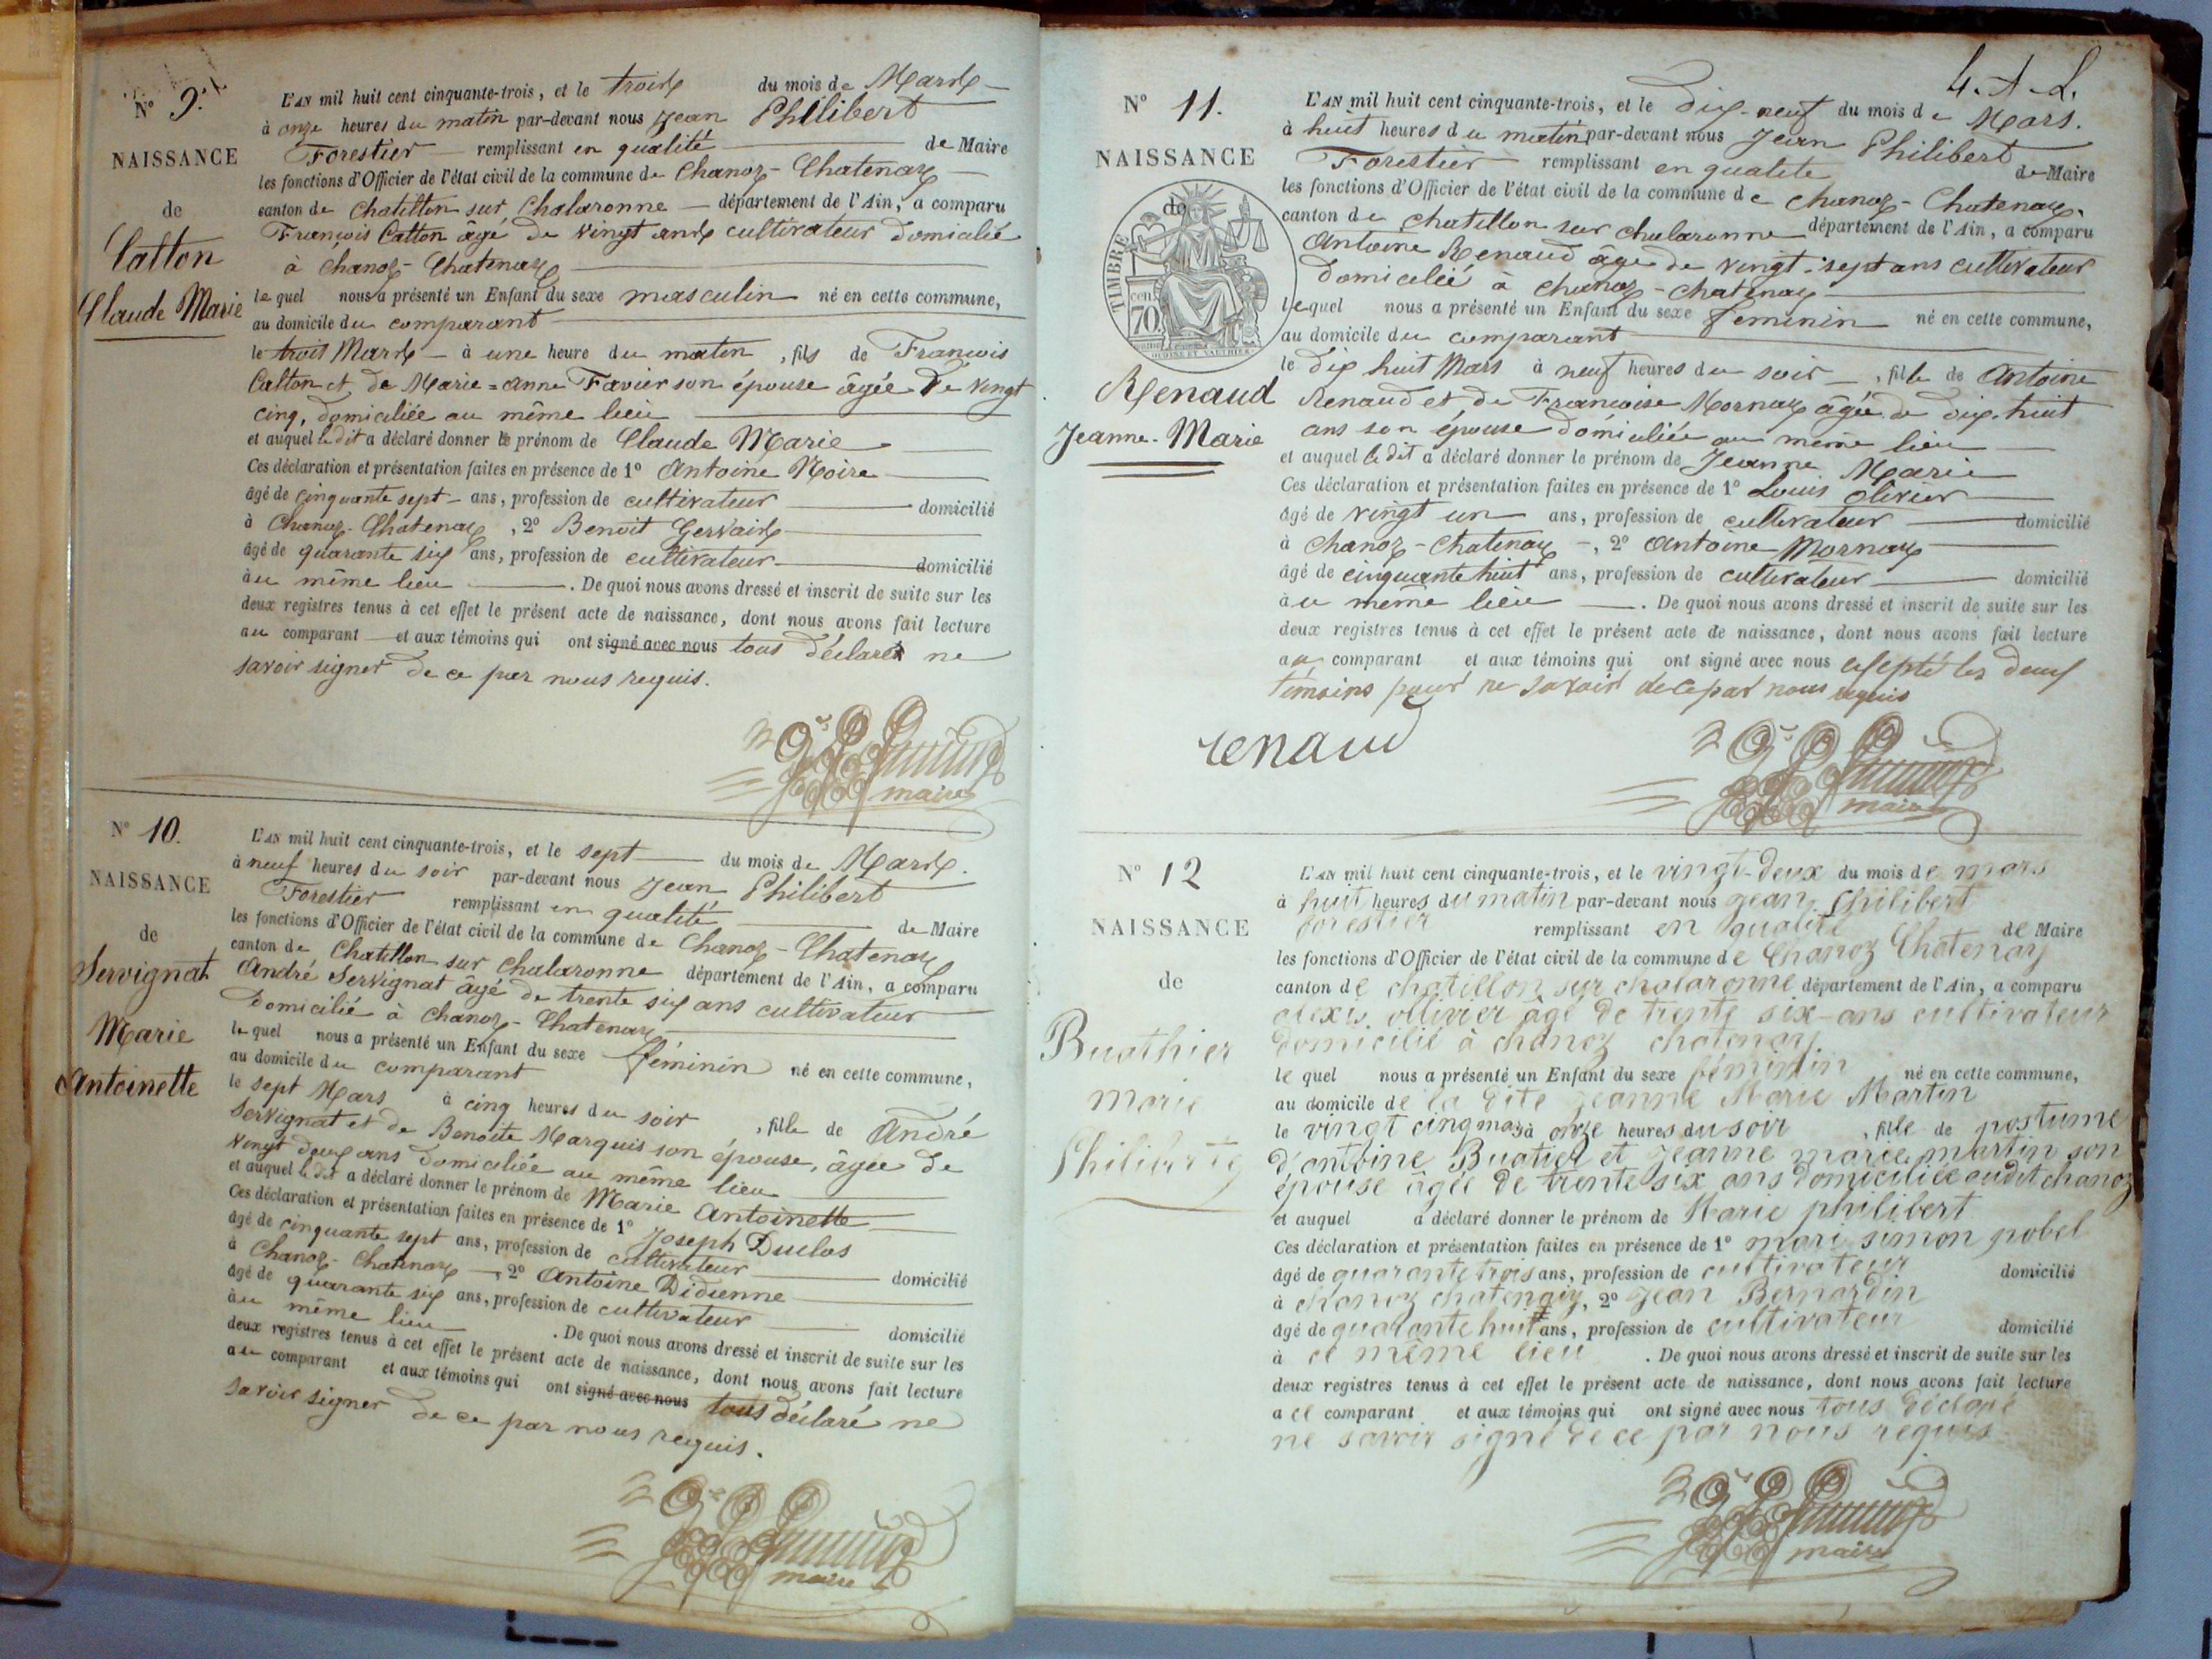 N° 9.
NAISSANCE
de
Catton
Claude Marie
L'AN mil huit cent cinquante-trois, et le trois du mois de Mars
à onze heures du matin par-devant nous Jean Philibert
Forestier remplissant en qualité de Maire
les fonctions d'Officier de l'état civil de la commune de Chanoz-Chatenay
canton de Chatillon sur Chalaronne département de l'Ain, a comparu
François Catton âgé de vingt ans cultivateur domicilié
à Chanoz-Chatenay
le quel nous a présenté un Enfant du sexe masculin né en cette commune,
au domicile du comparant
le trois Mars à une heure du matin, fils de François
Catton et de Marie=Anne Favier son épouse âgée de vingt
cinq, domiciliée au même lieu
et auquel le dit a déclaré donner le prénom de Claude Marie
Ces déclaration et présentation faites en présence de 1° Antoine Moire
âgé de cinquante sept ans, profession de cultivateur domicilié
à Chanoz-Chatenay, 2° Benoit Gervais
âgé de quarante six ans, profession de cultivateur domicilié
au même lieu. De quoi nous avons dressé et inscrit de suite sur les
deux registres tenus à cet effet le présent acte de naissance, dont nous avons fait lecture
au comparant et aux témoins qui ont signé avec nous tous déclaré ne
savoir signer de ce par nous requis.
maire
N° 10.
NAISSANCE
de
Servignat
Marie
Antoinette
L'AN mil huit cent cinquante-trois, et le sept du mois de Mars.
à neuf heures du soir par-devant nous Jean Philibert
Forestier remplissant en qualité de Maire
les fonctions d'Officier de l'état civil de la commune de Chanoz-Chatenay
canton de Chatillon sur Chalaronne département de l'Ain, a comparu
André Servignat âgé de trente six ans cultivateur
domicilié à Chanoz-Chatenay
le quel nous a présenté un Enfant du sexe féminin né en cette commune,
au domicile du comparant
le sept Mars à cinq heures du soir, fille de André
Servignat et de Benoite Marquis son épouse, âgée de
vingt deux ans domiciliée au même lieu
et auquel le dit a déclaré donner le prénom de Marie Antoinette
Ces déclaration et présentation faites en présence de 1° Joseph Duclos
âgé de cinquante sept ans, profession de cultivateur domicilié
à Chanoz-Chatenay, 2° Antoine Didienne
âgé de quarante six ans, profession de cultivateur domicilié
au même lieu. De quoi nous avons dressé et inscrit de suite sur les
deux registres tenus à cet effet le présent acte de naissance, dont nous avons fait lecture
au comparant et aux témoins qui ont signé avec nous tous déclaré ne
savoir signer de ce par nous requis.
maire
4. A. L.
N° 11.
NAISSANCE
de
TIMBRE
cen
70
Renaud
Jeanne-Marie
L'AN mil huit cent cinquante-trois, et le dix-neuf du mois de Mars.
à huit heures du matin par-devant nous Jean Philibert
Forestier remplissant en qualité de Maire
les fonctions d'Officier de l'état civil de la commune de Chanoz-Chatenay.
canton de Chatillon sur Chalaronne département de l'Ain, a comparu
Antoine Renaud âgé de vingt-sept ans cultivateur
domicilié à Chanoz-Chatenay
lequel nous a présenté un Enfant du sexe féminin né en cette commune,
au domicile du comparant
le dix huit Mars à neuf heures du soir, fille de Antoine
Renaud et de Françoise Mornay âgée de dix-huit
ans son épouse domiciliée au même lieu
et auquel le dit a déclaré donner le prénom de Jeanne Marie
Ces déclaration et présentation faites en présence de 1° Louis Olivier
âgé de vingt un ans, profession de cultivateur domicilié
à Chanoz-Chatenay, 2° Antoine Mornay
âgé de cinquante huit ans, profession de cultivateur domicilié
au même lieu. De quoi nous avons dressé et inscrit de suite sur les
deux registres tenus à cet effet le présent acte de naissance, dont nous avons fait lecture
au comparant et aux témoins qui ont signé avec nous excepté les deux
témoins pour ne savoir de ce par nous requis
renaud
maire
N° 12
NAISSANCE
de
Buathier
marie
Philiberte
L'AN mil huit cent cinquante-trois, et le vingt-deux du mois de mars
à huit heures du matin par-devant nous jean philibert
forestier remplissant en qualité de Maire
les fonctions d'Officier de l'état civil de la commune de Chanoz Chatenay
canton de chatillon sur chalaronne département de l'Ain, a comparu
alexis ollivier âgé de trente six ans cultivateur
domicilié à chanoz chatenay.
le quel nous a présenté un Enfant du sexe féminin né en cette commune,
au domicile de la dite jeanne Marie Martin
le vingt cinq mars à onze heures du soir, fille de postume
d'antoine Buatier et jeanne marie martin son
épouse agée de trente six ans domiciliée audit chanoz
et auquel a déclaré donner le prénom de Marie philibert
Ces déclaration et présentation faites en présence de 1° mari simon gobel
âgé de quarante trois ans, profession de cultivateur domicilié
à chanoz chatenay, 2° jean Bernardin
âgé de quarante huit ans, profession de cultivateur domicilié
à ce même lieu. De quoi nous avons dressé et inscrit de suite sur les
deux registres tenus à cet effet le présent acte de naissance, dont nous avons fait lecture
a ce comparant et aux témoins qui ont signé avec nous tous déclaré
ne savoir signé de ce par nous requis
maire